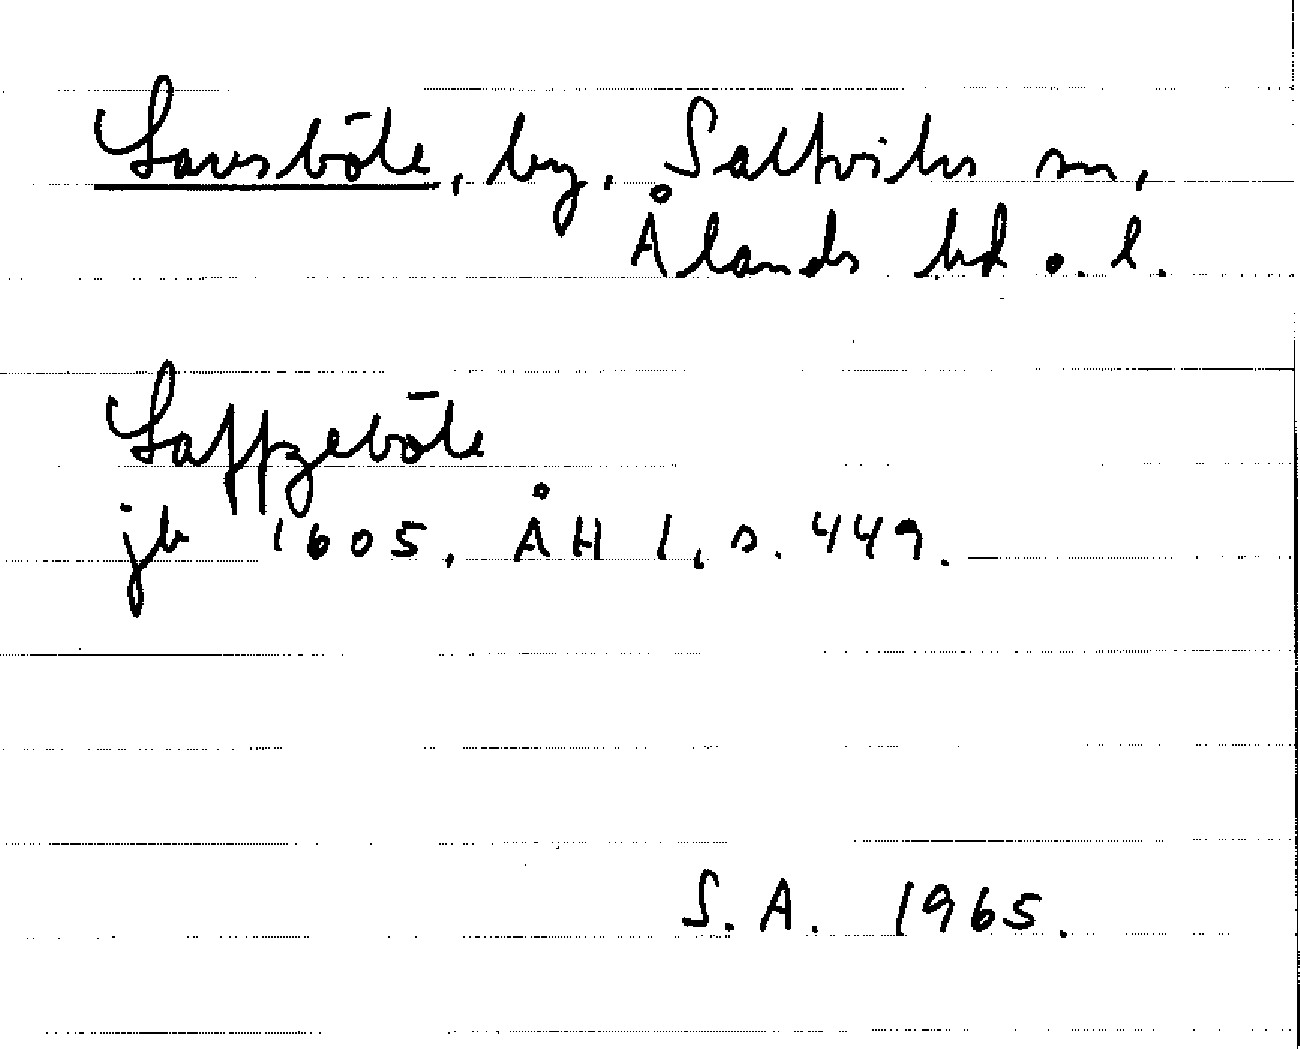 Lavsböle, by, Saltviks sn,
Ålands hd o. l.
Laffzeböle
jb 1605, ÅH 1, s. 449.
S. A. 1965.